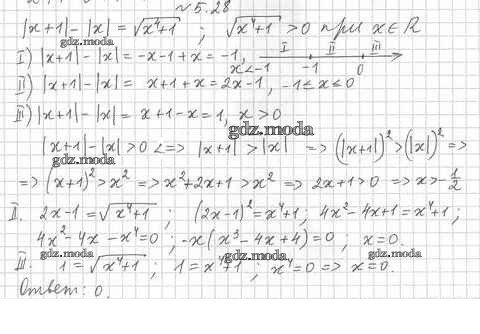 № 5.28
|x+1| - |x| = √(x⁴+1) ; √(x⁴+1) > 0 при x∈R
gdz.moda
I) |x+1| - |x| = -x-1+x = -1, x<-1
I II III
-1 0
II) |x+1| - |x| = x+1+x = 2x-1, -1≤x≤0
III) |x+1| - |x| = x+1-x = 1, x>0
gdz.moda
|x+1| - |x| > 0 <=> |x+1| > |x| => (|x+1|)² > (|x|)² =>
gdz.moda
=> (x+1)² > x² => x²+2x+1 > x² => 2x+1>0 => x>-1/2
II. 2x-1 = √(x⁴+1) ; (2x-1)² = x⁴+1 ; 4x²-4x+1 = x⁴+1 ;
4x²-4x-x⁴=0 ; -x(x³-4x+4)=0 ; x=0.
gdz.moda gdz.moda gdz.moda
III. 1 = √(x⁴+1) ; 1 = x⁴+1 ; x⁴=0 => x=0.
Ответ: 0.